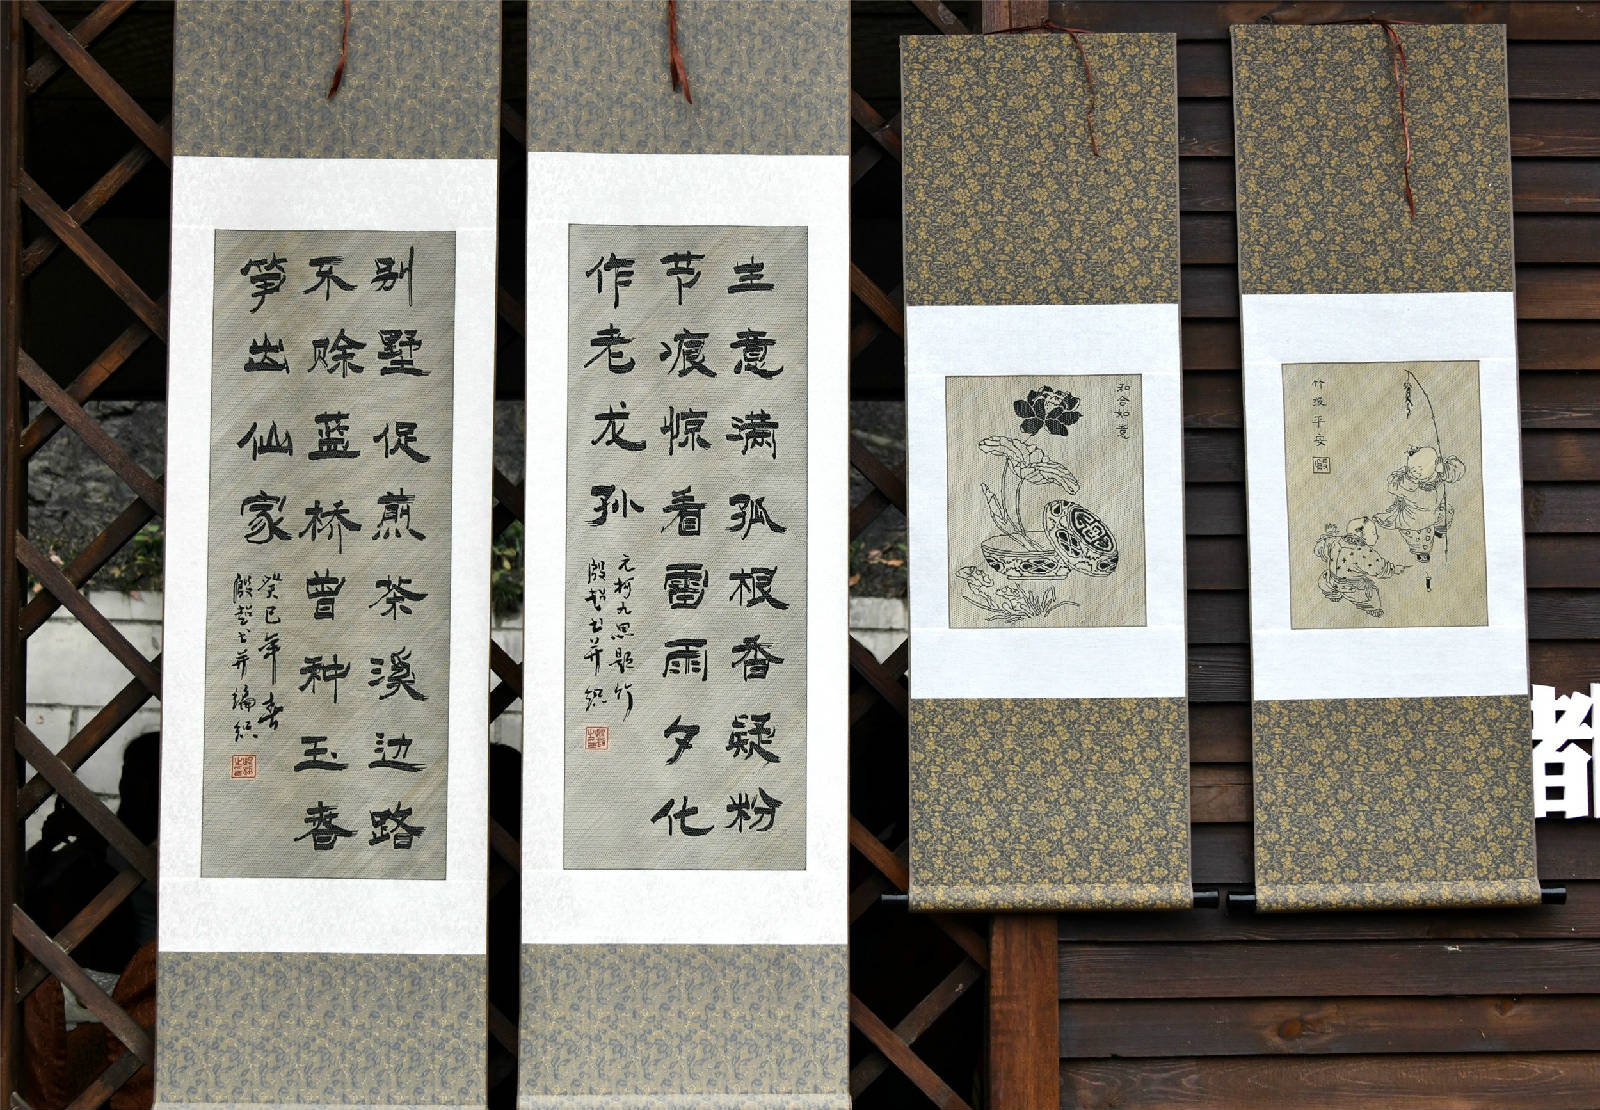 别墅促煎茶溪边路
不赊蓝桥曾种玉春
笋出仙家
癸巳年春
殷超书并编织
主意满孤根香疑粉
节痕惊看雷雨夕化
作老龙孙
元柯九思题竹
殷超书并织
和合如意
竹报平安
都